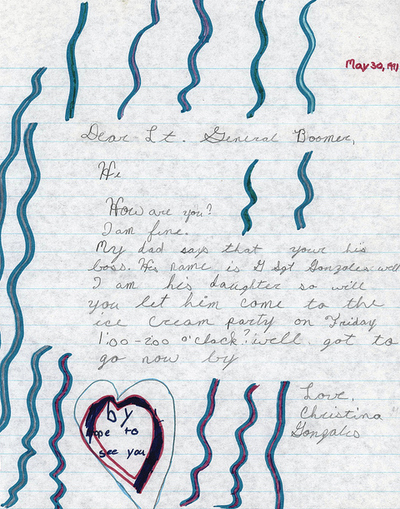 May 30, 1991
Dear Lt. General Boomer,
Hi
How are you?
I am fine.
My dad says that your his
boss. His name is G Sgt Gonzales well
I am his daughter so will
you let him come to the
ice cream party on Friday
1:00-200 o'clock? well got to
go now by
Love,
Christina
Gonzales
by
hope to
see you